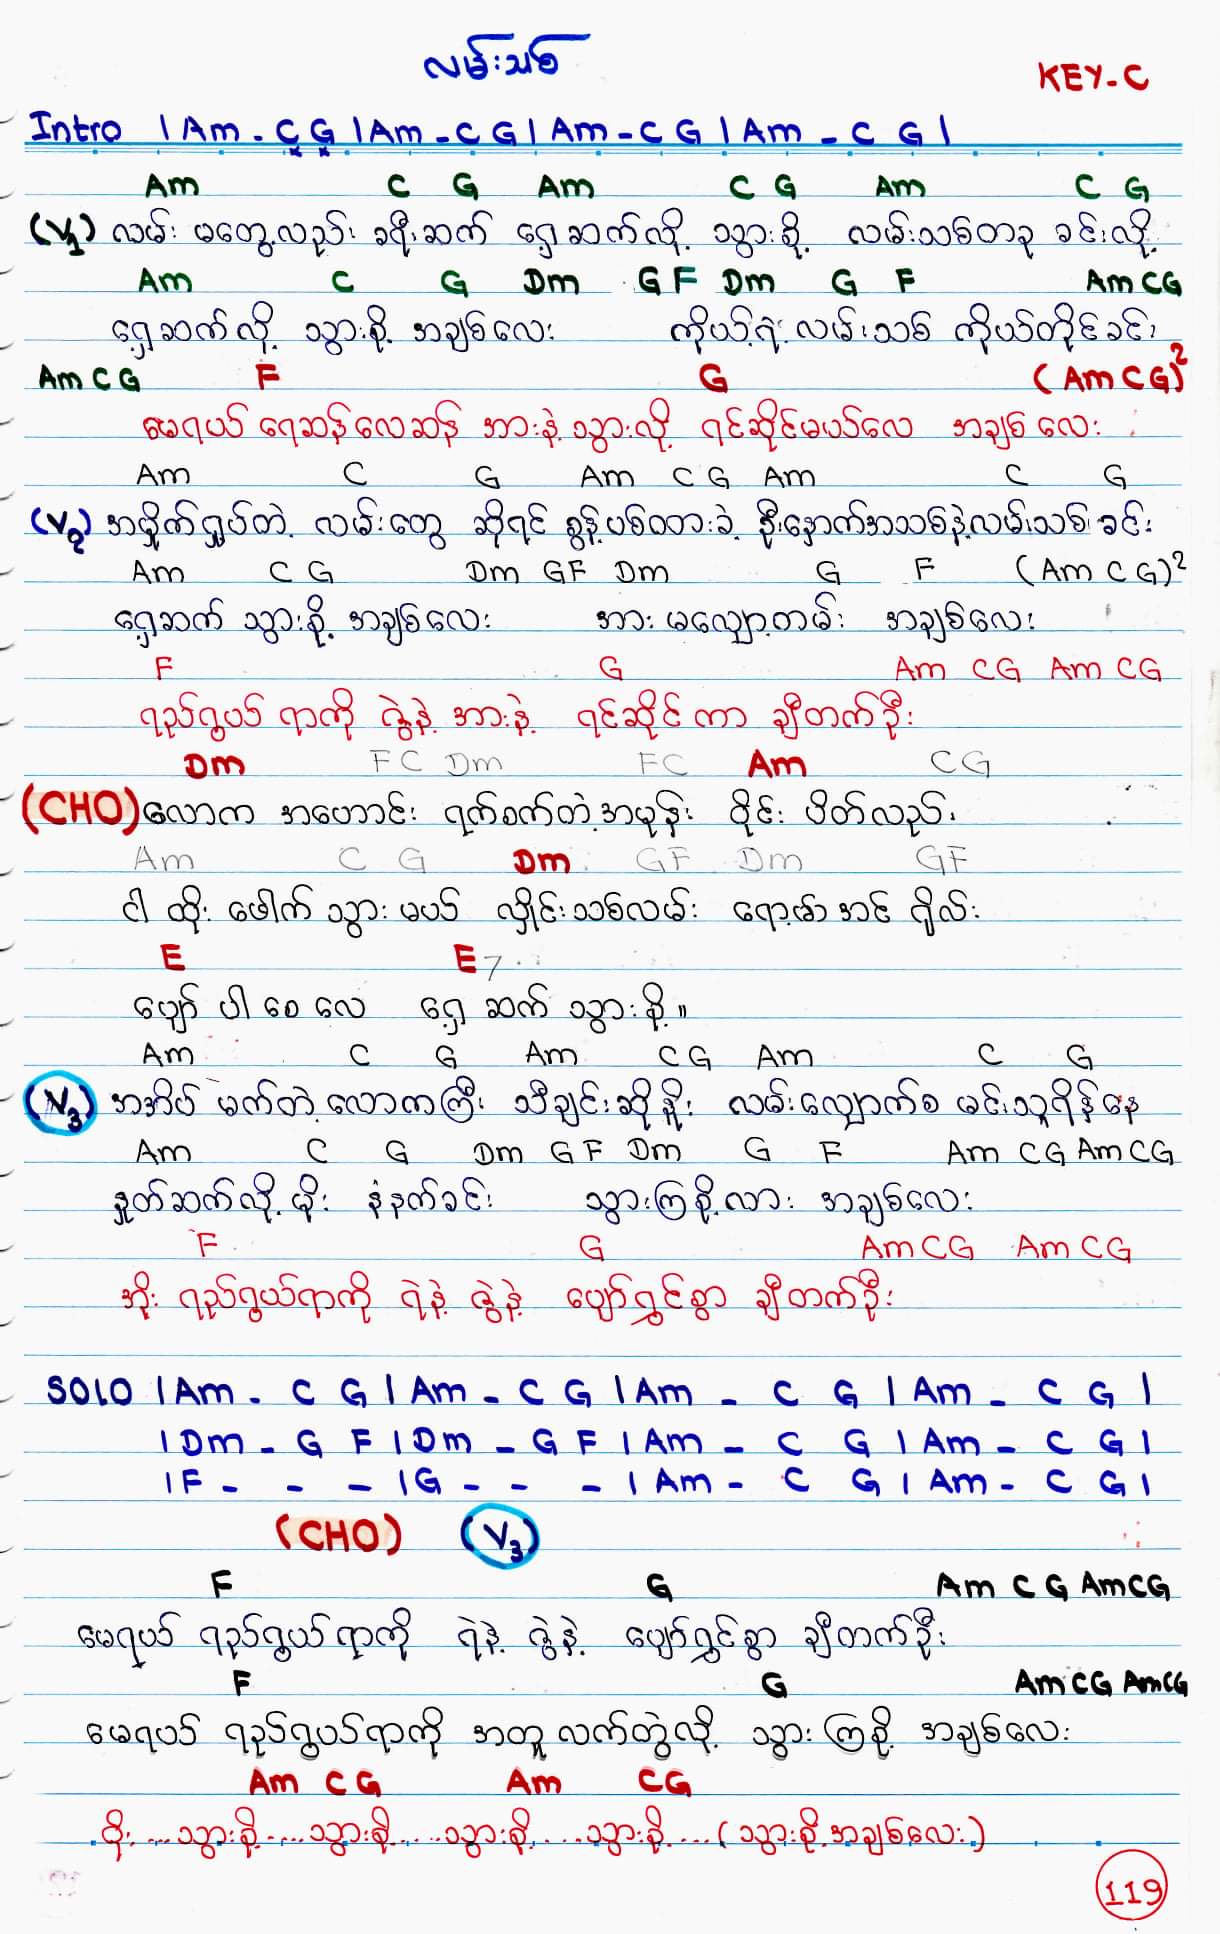 လမ်းသစ်
KEY-C
Intro | Am - C G | Am - C G | Am - C G | Am - C G |
Am C G Am C G Am C G
(V1) လမ်း မတွေ့လည်း ခရီးဆက် ရှေ့ဆက်လို့ သွားစို့ လမ်းသစ်တခု ခင်းလို့
Am C G Dm G F Dm G F Am C G
ရှေ့ဆက်လို့ သွားစို့ အချစ်လေး ကိုယ့်ရဲ့ လမ်းသစ် ကိုယ်တိုင်ခင်း
Am C G F G (Am C G)2
မေရယ် ရေဆန်လေဆန် အားနဲ့ သွားလို့ ရင်ဆိုင်မယ်လေ အချစ်လေး
Am C G Am C G Am C G
(V2) အမှိုက်ရှုပ်တဲ့ လမ်းတွေ ဆိုရင် စွန့်ပစ်ထားခဲ့ ဦးနှောက်အသစ်နဲ့လမ်းသစ်ခင်း
Am C G Dm G F Dm G F (Am C G)2
ရှေ့ဆက် သွားစို့ အချစ်လေး အားမလျှော့တမ်း အချစ်လေး
F G Am C G Am C G
ရည်ရွယ်ရာကို ဇွဲနဲ့ အားနဲ့ ရင်ဆိုင်ကာ ချီတက်ဦး
Dm F C Dm F C Am C G
(CHO) လောက အဟောင်း ရက်စက်တဲ့အမုန်း ဝိုင်း ပိတ်လည်း
Am C G Dm G F Dm G F
ငါ ထိုး ဖေါက် သွား မယ် လှိုင်းသစ်လမ်း ရော့ခ်အင် ရိုလ်း
E E7
ပျော် ပါ စေ လေ ရှေ့ ဆက် သွားစို့ ။
Am C G Am C G Am C G
(V3) အအိပ် မက်တဲ့ လောကကြီး သီချင်းဆိုနှိုး လမ်းလျှောက်စ မင်းသူရိန်နေ
Am C G Dm G F Dm G F Am C G Am C G
နှုတ်ဆက်လို့ မိုး နံနက်ခင်း သွားကြစို့လား အချစ်လေး
F G Am C G Am C G
အိုး ရည်ရွယ်ရာကို ရဲနဲ့ ဇွဲနဲ့ ပျော်ရွှင်စွာ ချီတက်ဦး
SOLO | Am - C G | Am - C G | Am - C G | Am - C G |
| Dm - G F | Dm - G F | Am - C G | Am - C G |
| F - - - | G - - - | Am - C G | Am - C G |
(CHO) (V3)
F G Am C G Am C G
မေရယ် ရည်ရွယ်ရာကို ရဲနဲ့ ဇွဲနဲ့ ပျော်ရွှင်စွာ ချီတက်ဦး
F G Am C G Am C G
မေရယ် ရည်ရွယ်ရာကို အတူ လက်တွဲလို့ သွားကြစို့ အချစ်လေး
Am C G Am C G
ဝိုး.....သွားစို့.....သွားစို့.....သွားစို့.....သွားစို့.... (သွားစို့အချစ်လေး)
119